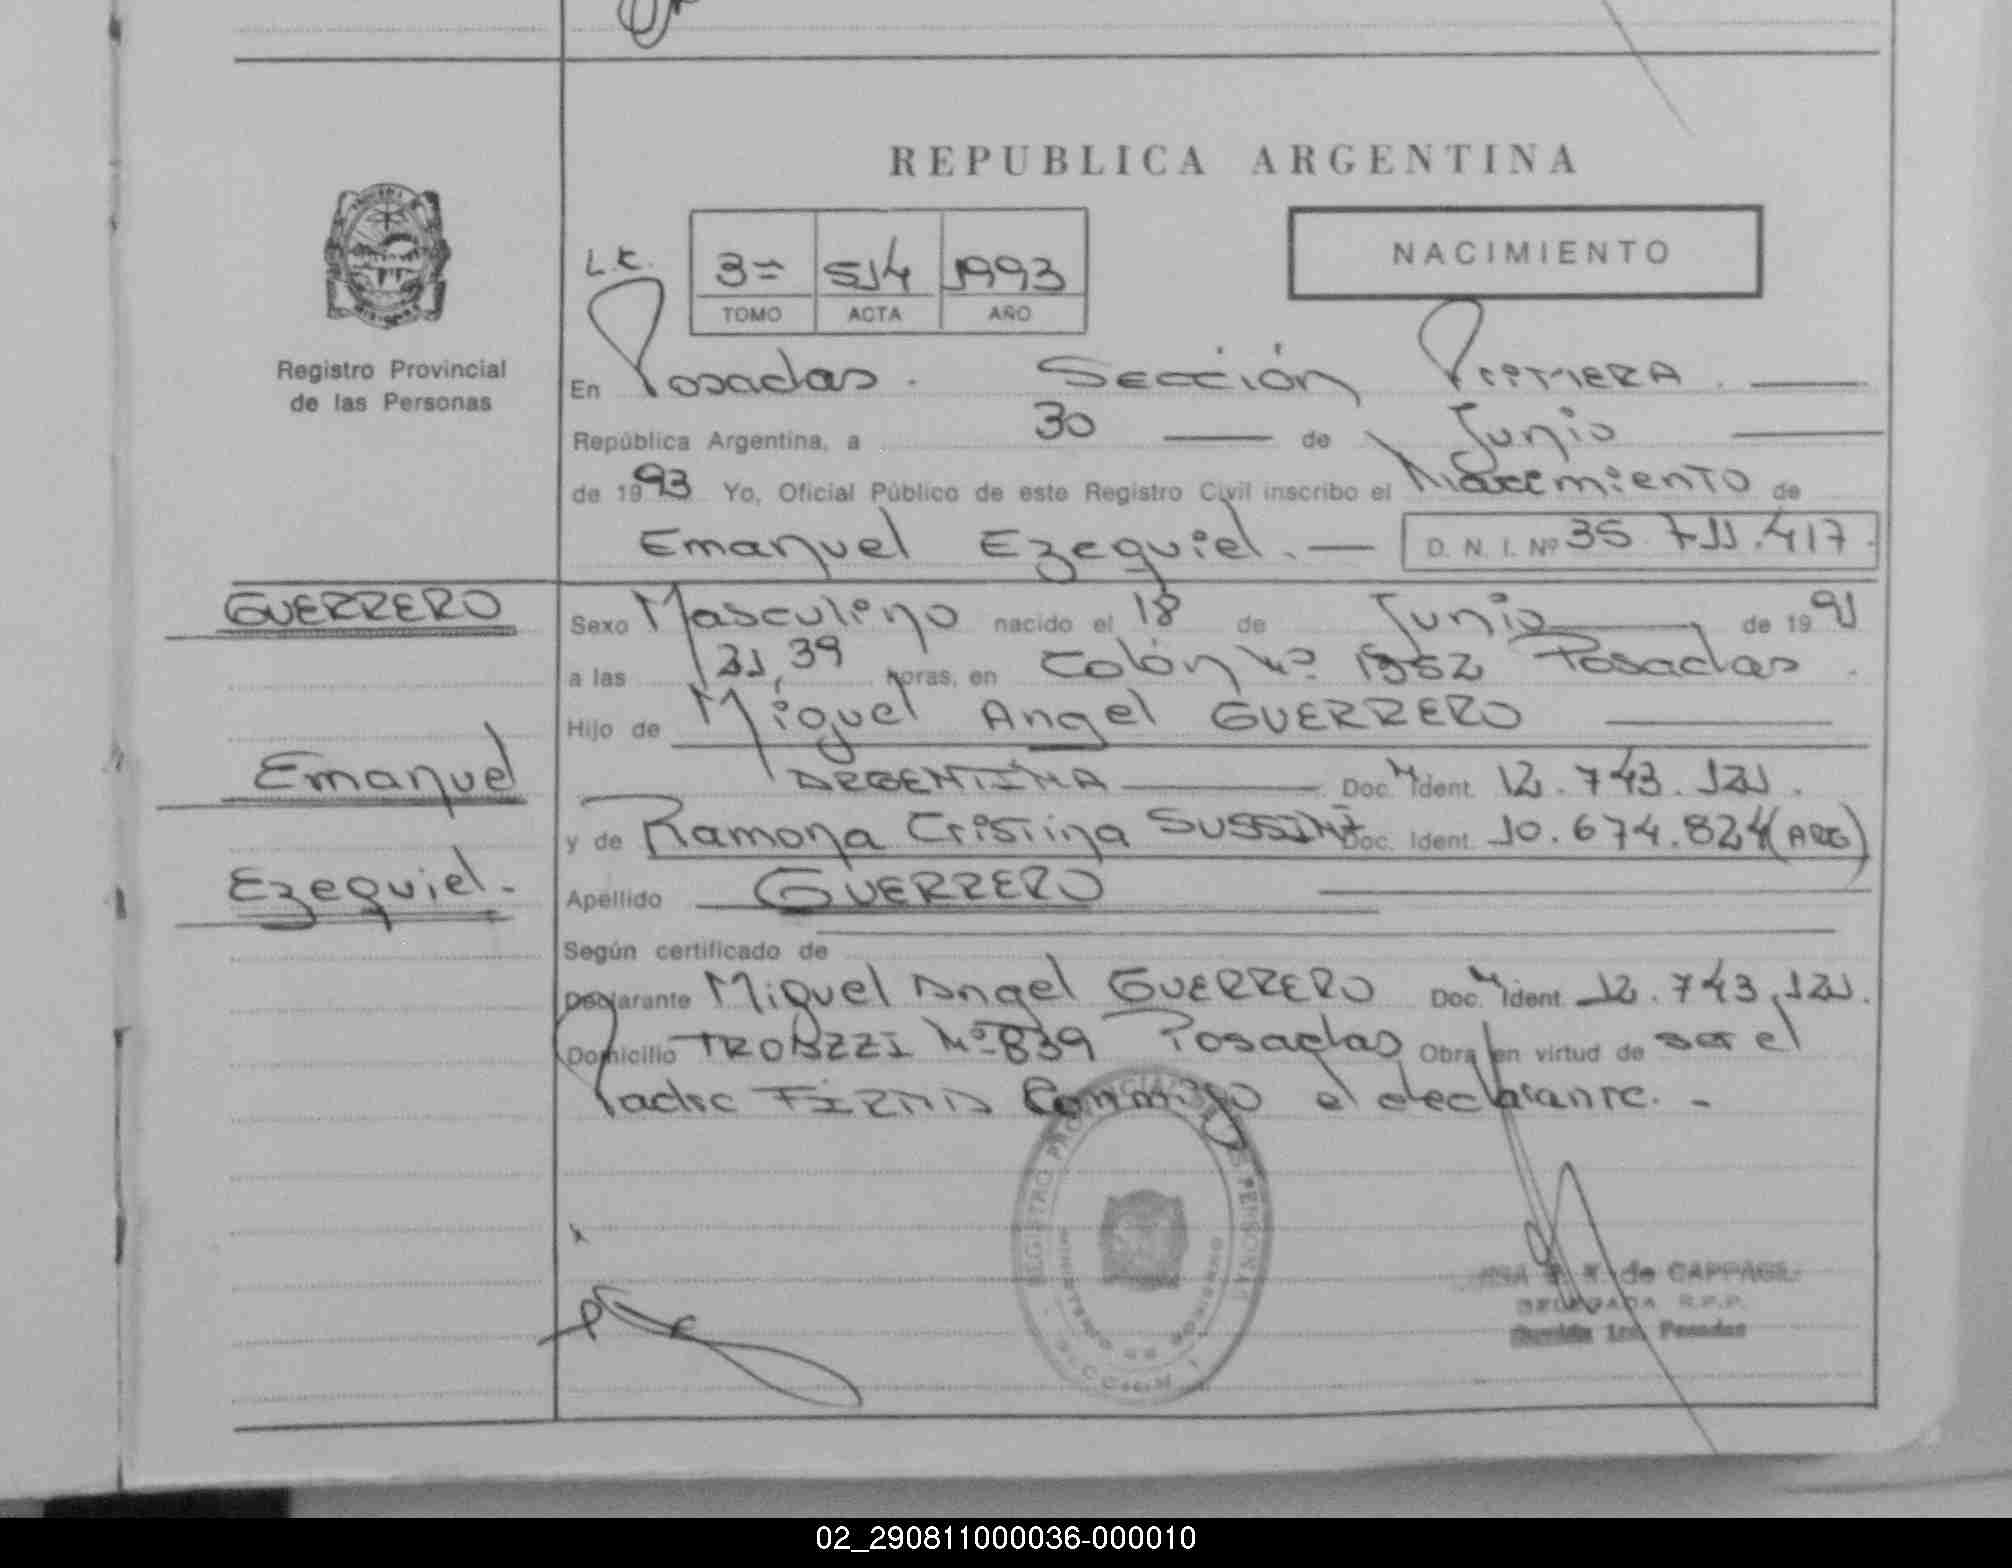 REPUBLICA ARGENTINA
NACIMIENTO
L.C.
3= 514 1993
TOMO ACTA AÑO
Registro Provincial
de las Personas
En Posadas. Sección Primera.
República Argentina, a 30 de Junio
de 1993 Yo, Oficial Público de este Registro Civil inscribo el Nacimiento de
Emanuel Ezequiel. D. N. I. Nº 35.711.417.
GUERRERO
Emanuel
Ezequiel.-
Sexo Masculino nacido el 18 de Junio de 1991
a las 21,39 horas, en Colón Nº 1952 Posadas.
Hijo de Miguel Angel GUERRERO
ARGENTINA Doc. Ident. 12.743.121.
y de Ramona Cristina SUSSINI Doc. Ident. 10.674.824 (ARG)
Apellido GUERRERO
Según certificado de
Declarante Miguel Angel GUERRERO Doc. Ident. 12.743.121.
Domicilio Nº 839 Posadas Obra en virtud de ser el
Padre FIRMA Conmigo el declarante.-
REGISTRO PROVINCIAL DE LAS PERSONAS
MINISTERIO DE GOBIERNO
MISIONES
de CAPPAGLI
DELEGADA R.P.P.
Sección 1ra. Posadas
02_290811000036-000010